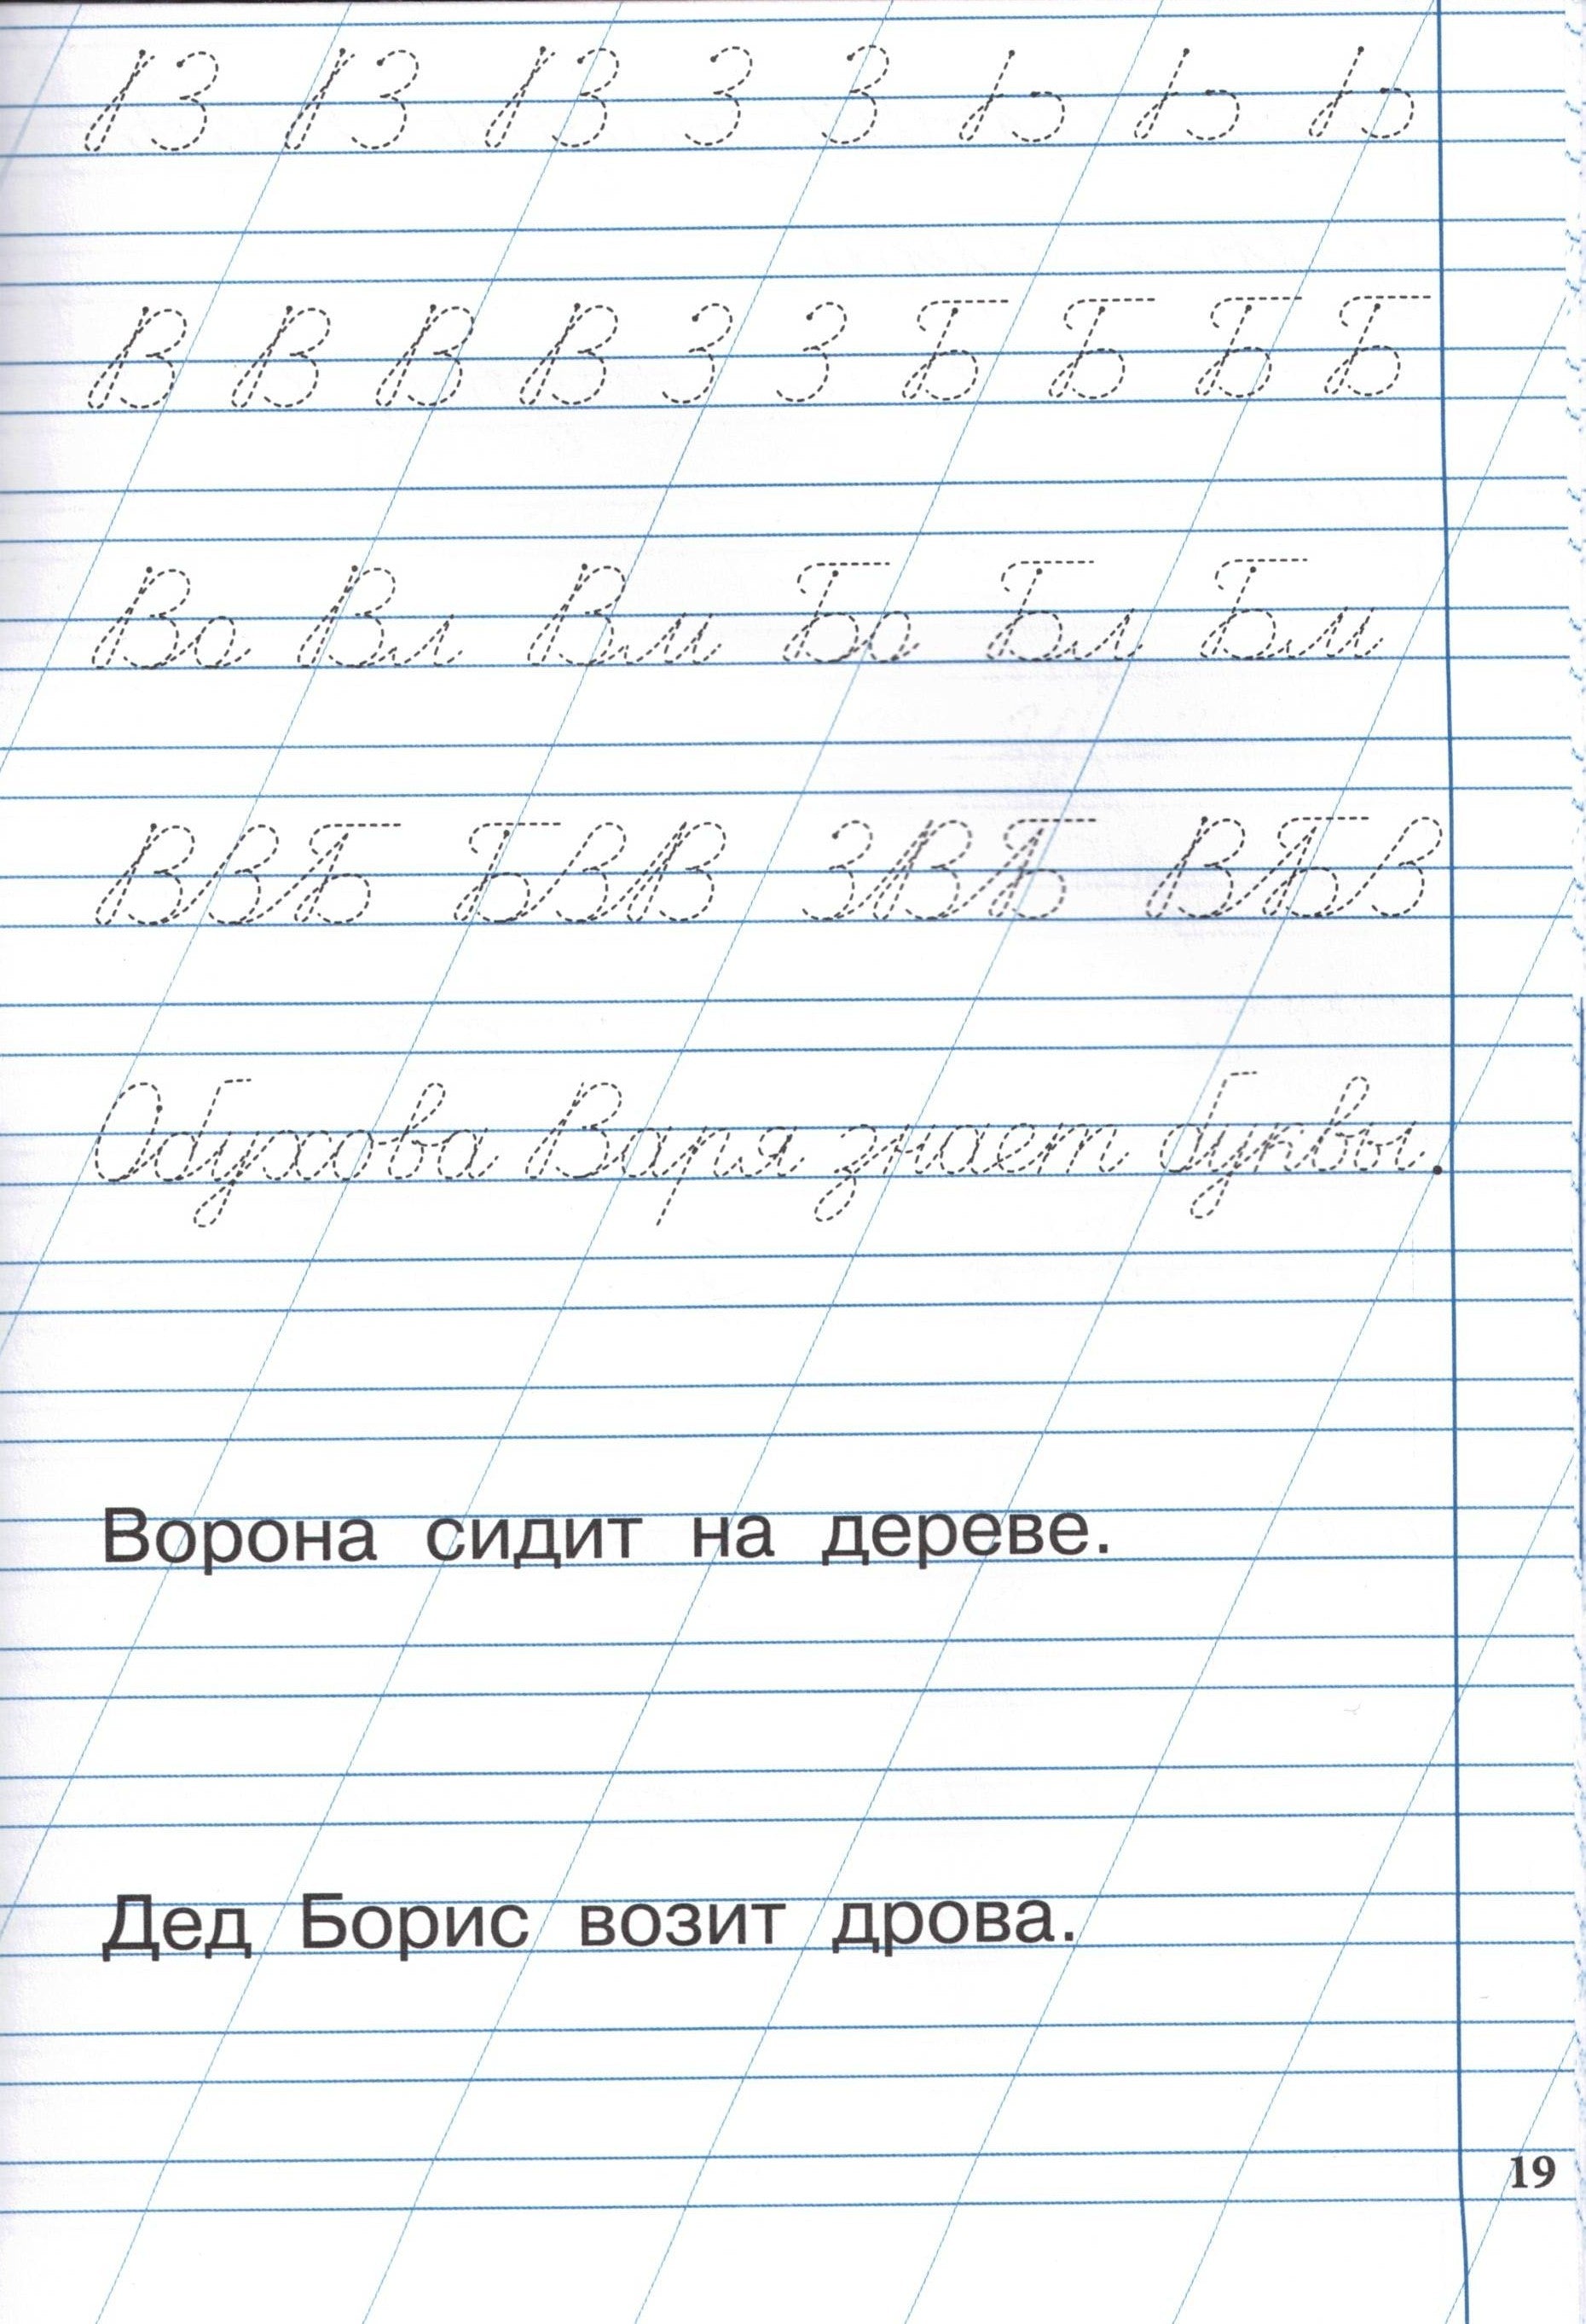 В В В З З Ь Ь Ь
В В В В З З Б Б Б Б
Во Вл Ви Бо Бл Би
ВВБ БВВ ЗВБ ВБВ
Обухова Варя знает буквы.
Ворона сидит на дереве.
Дед Борис возит дрова.
19